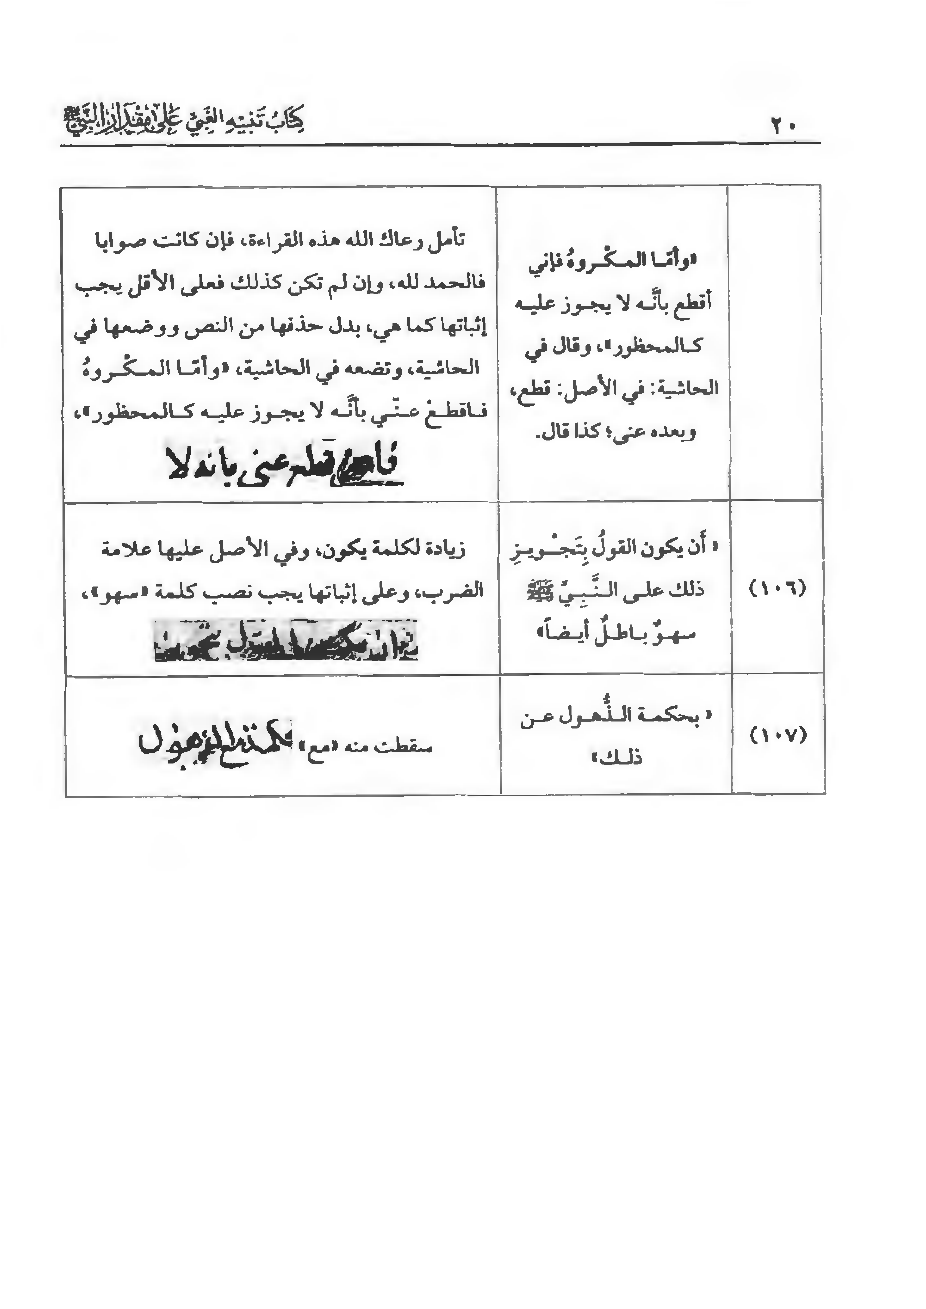 ٢٠
كِتَابُ تَنبِيهِ الغَبِيِّ عَلَى مِقْدَارِ النَّبِيِّ ﷺ
«وأمّا المكْروهُ فإني
أقطع بأنَّه لا يجوز عليه
كالمحظور»، وقال في
الحاشية: في الأصل: قطع،
وبعده عني؛ كذا قال.
تأمل رعاك الله هذه القراءة، فإن كانت صوابا
فالحمد لله، وإن لم تكن كذلك فعلى الأقل يجب
إثباتها كما هي، بدل حذفها من النص ووضعها في
الحاشية، وتضعه في الحاشية، «وأمّا المكْروهُ
فاقطعْ عنّي بأنَّه لا يجوز عليه كالمحظور»،
قطع عني بانه لا
(١٠٦)
« أَن يكون القولُ بِتَجْويزِ
ذلك على النَّبِيِّ ﷺ
سهوٌ باطلٌ أيضاً»
زيادة لكلمة يكون، وفي الأصل عليها علامة
الضرب، وعلى إثباتها يجب نصب كلمة «سهو»،
(١٠٧)
« بحكمة الذُّهول عن
ذلك»
سقطت منه «مع»